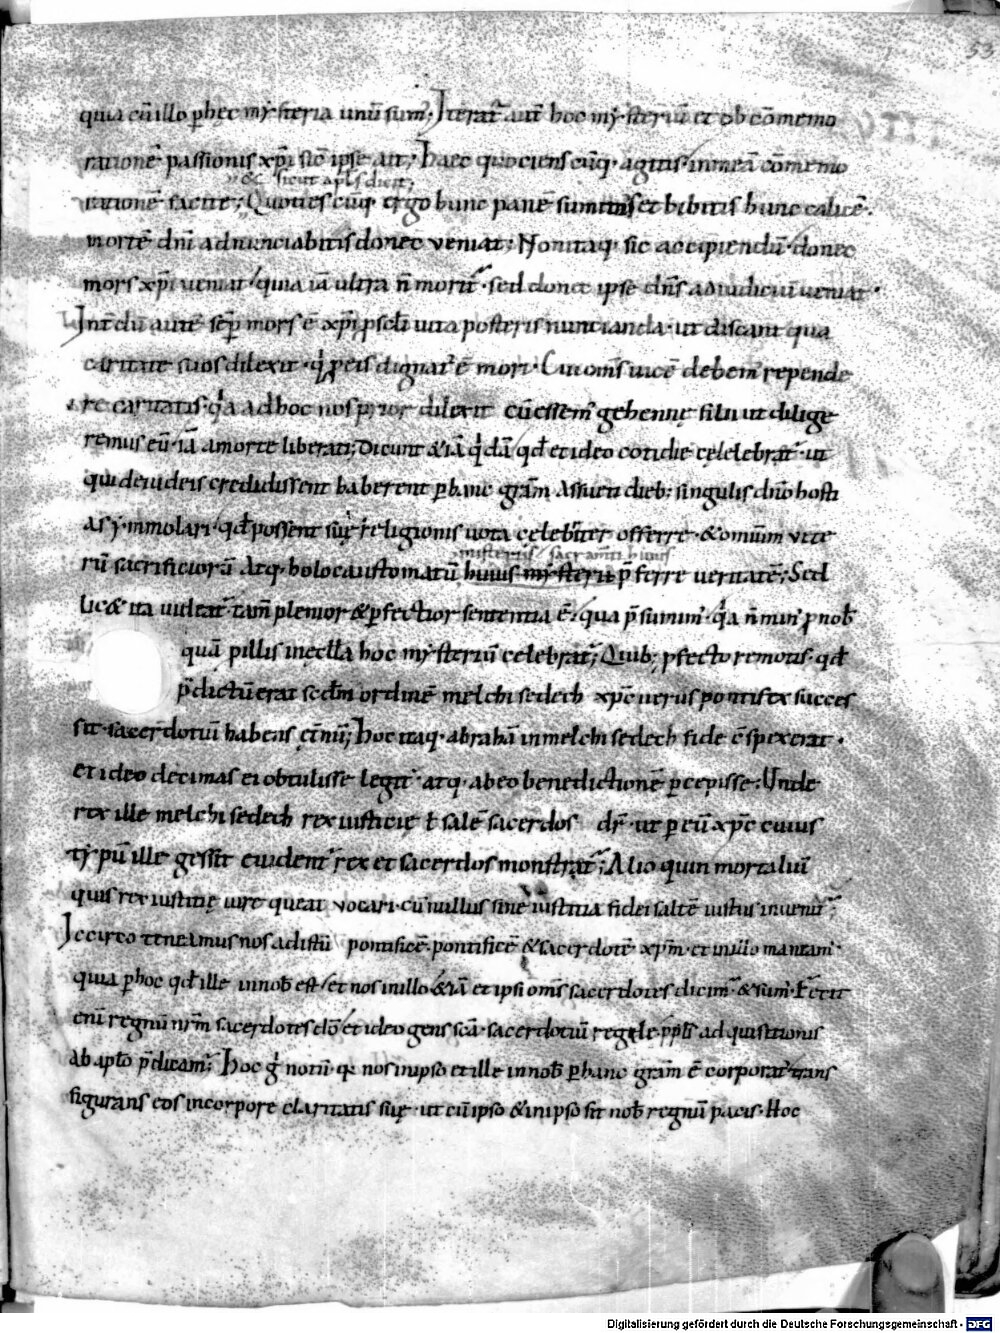 53
quia cū illo ꝑ hęc mẏsteria unū sum᷒. Iterat᷒ aut̄ hoc mẏsteriū et ob cōmemo
rationē passionis xp̄i sic̄ ipse ait; Haec quocienscūq· agitis in meā cōmemo
&c sicut apl̄s dicit;
rationē facite; Quotiescūq· ergo hunc panē sumitis et bibitis hunc calicē.
mortē dn̄i adnunciabitis donec veniat; Non itaq· sic accipiendū· donec
mors xp̄i veniat· quia iā ultra n̄ morit᷒· sed donec ipse dn̄s ad iudiciū veniat·
Int̄dū autē sēp mors ē xp̄i p sc̄li vita posteris nuncianda· ut discant qua
caritate suos dilexit· q̇ ꝓ eis dignat᷒ ē mori· Cui om̄s vicē debem᷒ repende
re caritatis· q̇a ad hoc nos prior dilexit cū essem᷒ gehennę filii ut dilige
remus eū· iā a morte liberati; Dicunt & iā q̇dā qd̄ et ideo cotidie cęlebrat᷒· ut
qui de iudeis credidissent haberent ꝑ hanc gr̄am assueti dieb; singulis dn̄o hosti
as ẏmmolari· qd̄ possent suę religionis vota cęlebrit̄ offerre· & omniū vete
misteriis sacram̄ti huius
rū sacrificiorū atq· holocaustomatū huius mẏsterii p̄ferre veritatē; Sed
lic& ita videat᷒ tam̄ plenior & ꝑfectior sententia ē· qua p̄sumim᷒· q̇a n̄ min᷒ ꝓ nob̄
quā ꝓ illis in eccl̄a hoc mẏsteriū celebrat᷒; Quib; ꝓfecto remotis· qd̄
p̄dictū erat scd̄m ordinē melchisedech xp̄c verus pontifex succes
sit· sacerdotiū habens ęt̄nū; Hoc itaq· abrahā in melchisedech fide c̄spexerat·
et ideo decimas ei obtulisse legit᷒· atq· ab eo benedictionē ꝑcepisse; Unde
rex ille melchisedech rex iusticie ł salē sacerdos dr̄· ut ꝑ eū xp̄c cuius
tẏpū ille gessit evident᷒ rex et sacerdos monstrat᷒; Alioquin mortaliū
quis rex iustitię iure queat vocari· cū nullus sine iustitia fidei saltē iustus invenit᷒;
Iccirco teneamus nos ad istū pontificē· pontificē & sacerdotē xp̄m· et in illo maneam᷒·
quia ꝑ hoc qd̄ ille in nob̄ est· et nos in illo & iā et ipsi om̄s sacerdotes dicim᷒ & sum᷒· Fecit
enī regnū nr̄m sacerdotes dō et ideo gens sc̄a· sacerdotiū regale ppl̄s adquisitionis
ab apl̄o p̄dicam᷒; Hoc g̊ notū· qa nos in ipso et ille in nob̄ ꝑ hanc gr̄am ē corporat᷒ trans
figurans eos in corpore claritatis suę· ut cū ipso & in ipso sit nob̄ regnū pacis· Hoc
Digitalisierung gefördert durch die Deutsche Forschungsgemeinschaft - DFG